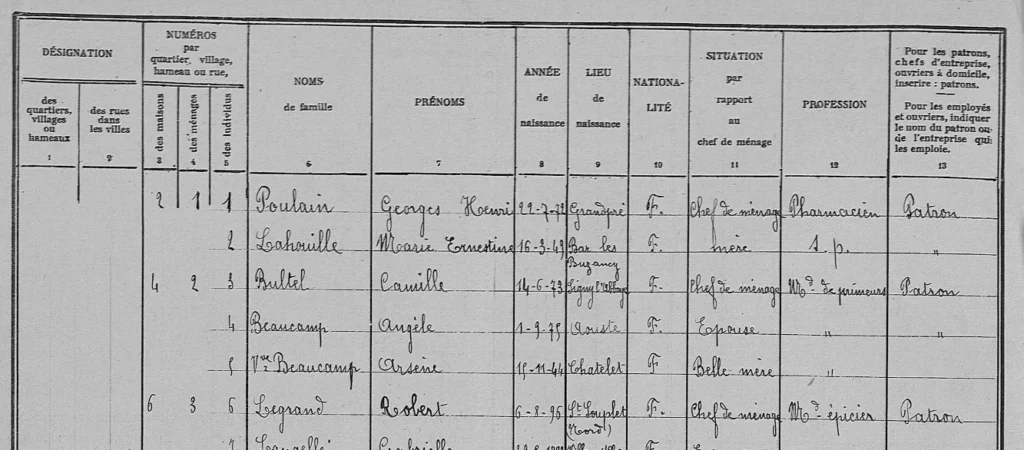 DÉSIGNATION
des quartiers, villages ou hameaux
1
des rues dans les villes
2
NUMÉROS par quartier, village, hameau ou rue,
des maisons
3
des ménages
4
des individus
5
NOMS de famille
6
PRÉNOMS
7
ANNÉE de naissance
8
LIEU de naissance
9
NATIONA-LITÉ
10
SITUATION par rapport au chef de ménage
11
PROFESSION
12
Pour les patrons, chefs d'entreprise, ouvriers à domicile, inscrire : patrons.
Pour les employés et ouvriers, indiquer le nom du patron ou de l'entreprise qui les emploie.
13
2 1 1 Poulain Georges Henri 22-7-72 Grandpré F. Chef de ménage Pharmacien Patron
2 Lahouille Marie Ernestine 16-3-49 Bar les Buzancy F. mère s. p. "
4 2 3 Bultel Camille 14-6-73 Signy l'Abbaye F. Chef de ménage Md de primeurs Patron
4 Beaucamp Angèle 1-9-75 Aouste F. Epouse " "
5 Vve Beaucamp Arsène 15-11-44 Chatelet F Belle mère "
6 3 6 Legrand Robert 6-8-96 St Souplet (Nord) F. Chef de ménage Md épicier Patron
7